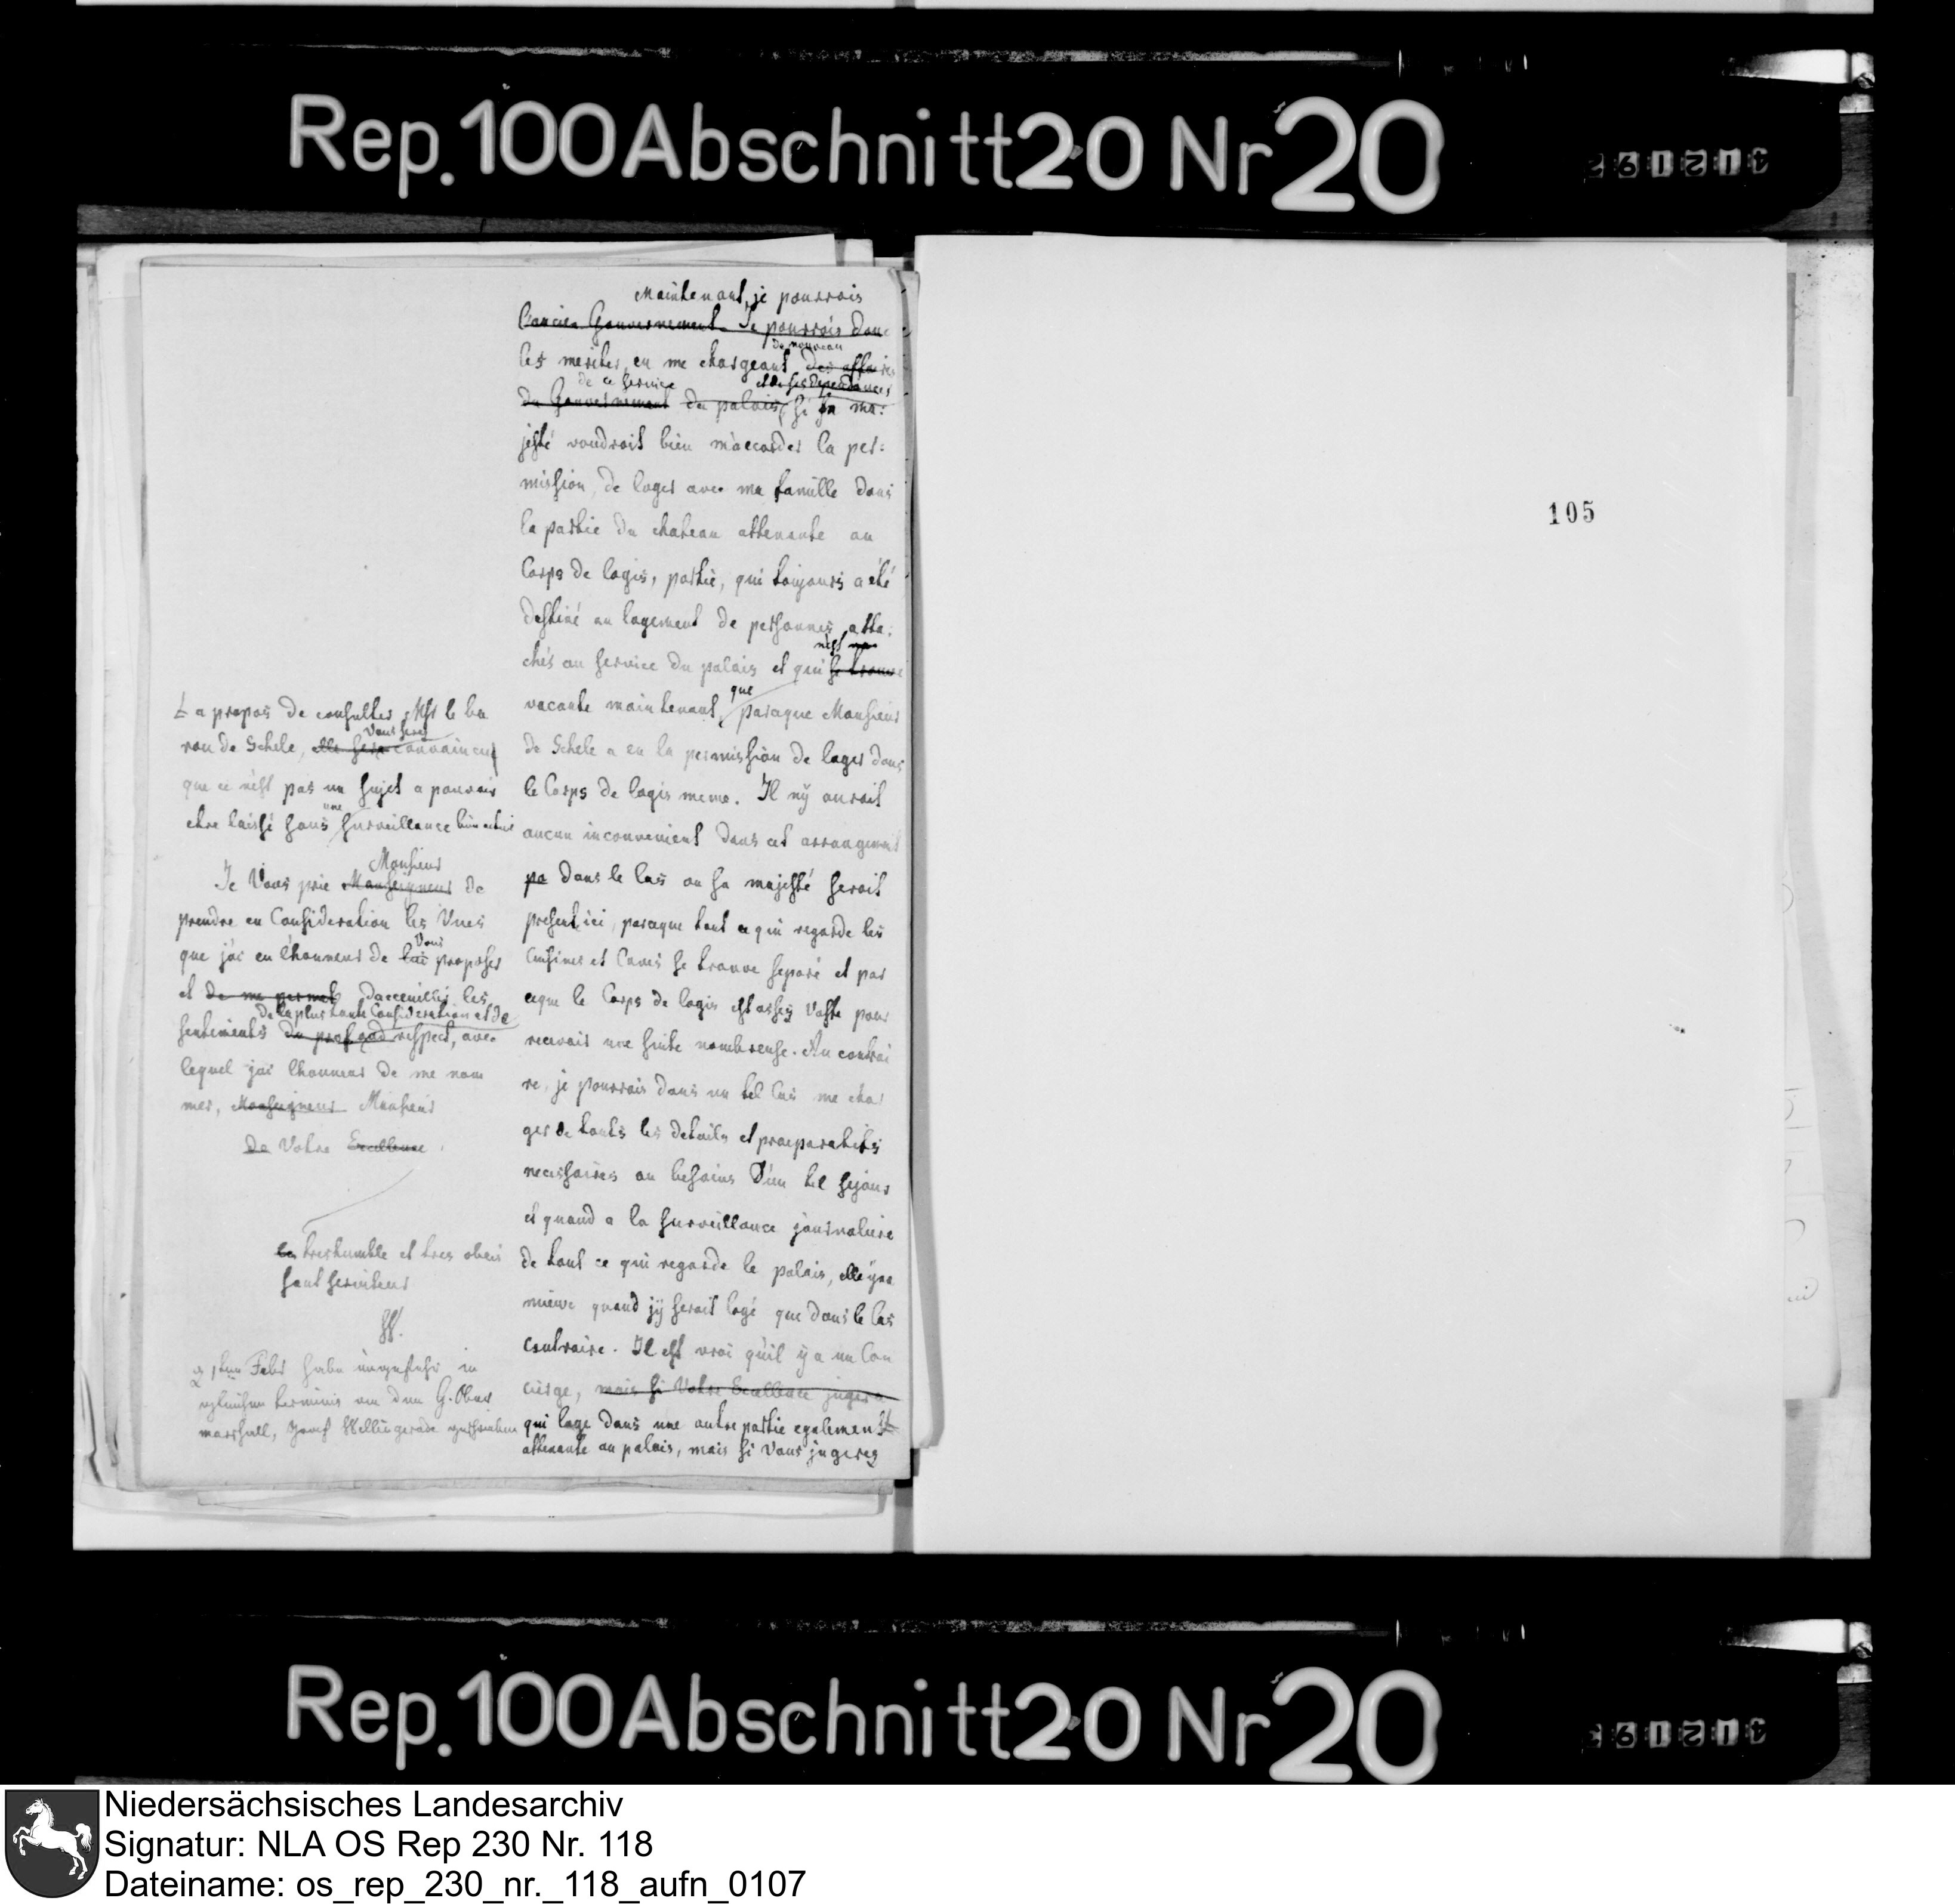 Rep. 100 Abschnitt 20 Nr 20
Maintenant, je pourrois
l'ancien Gouvernement. Je pourrois donc
les meriter, en me chargeant des affaires
de nouveau
de ce service et de ses dependances
du Gouvernement du palais, si sa ma:
jesté voudroit bien m'accorder la per:
mission, de loger avec ma famille dans
la partie du chateau attenante au
Corps de logis, partie, qui toujours a été
destiné au logement de personnes atta:
n'est
chés au service du palais et qui se trouve
que
vacante maintenant, parceque Monsieur
de Schele a eu la permission de loger dans
le Corps de logis meme. Il n'ÿ auroit
aucun inconvenient dans cet arrangement
pa dans le Cas ou sa majesté seroit
present ici, parceque tout ce qui regarde les
Cuisines et Caves se trouve separé et par
ceque le Corps de logis est assez vaste pour
recevoir une suite nombreuse. Au contrai
re, je pourrois dans un tel Cas me char
ger de touts les details et praeparatifs
necessaires au besoins d'un tel sejour
et quand a la surveillance journaliere
de tout ce qui regarde le palais, elle
mieux quand j'ÿ serois logé que dans le Cas
contraire. Il est vrai qu'il ÿ a un Con
cierge, mais si Votre Excellence jugera
qui loge dans une autre partie egalement
attenante au palais, mais si Vous jugerez
a propos de consulter Msr le ba
Vous serez
ron de Schele, elle sera convaincu
que ce n'est pas un sujet a pouvoir
une
etre laissé sans surveillance
Monsieur
Je Vous prie Monseigneur de
prendre en Consideration les Vues
Vous
que j'ai eu l'honneur de lui proposer
et de me permet d'accueillir les
de la plus haute Consideration et de
sentiments du profond respect, avec
lequel j'ai l'honneur de me nom
mer, Monseigneur Monsieur
de Votre Excellence
le treshumble et tres obeis
sant serviteur
1ten Febr habe ungefehr in
gleichen terminis an den G. Ober
marschall, Graf Wellingerode geschrieben
105
Rep. 100 Abschnitt 20 Nr 20
Niedersächsisches Landesarchiv
Signatur: NLA OS Rep 230 Nr. 118
Dateiname: os_rep_230_nr._118_aufn_0107